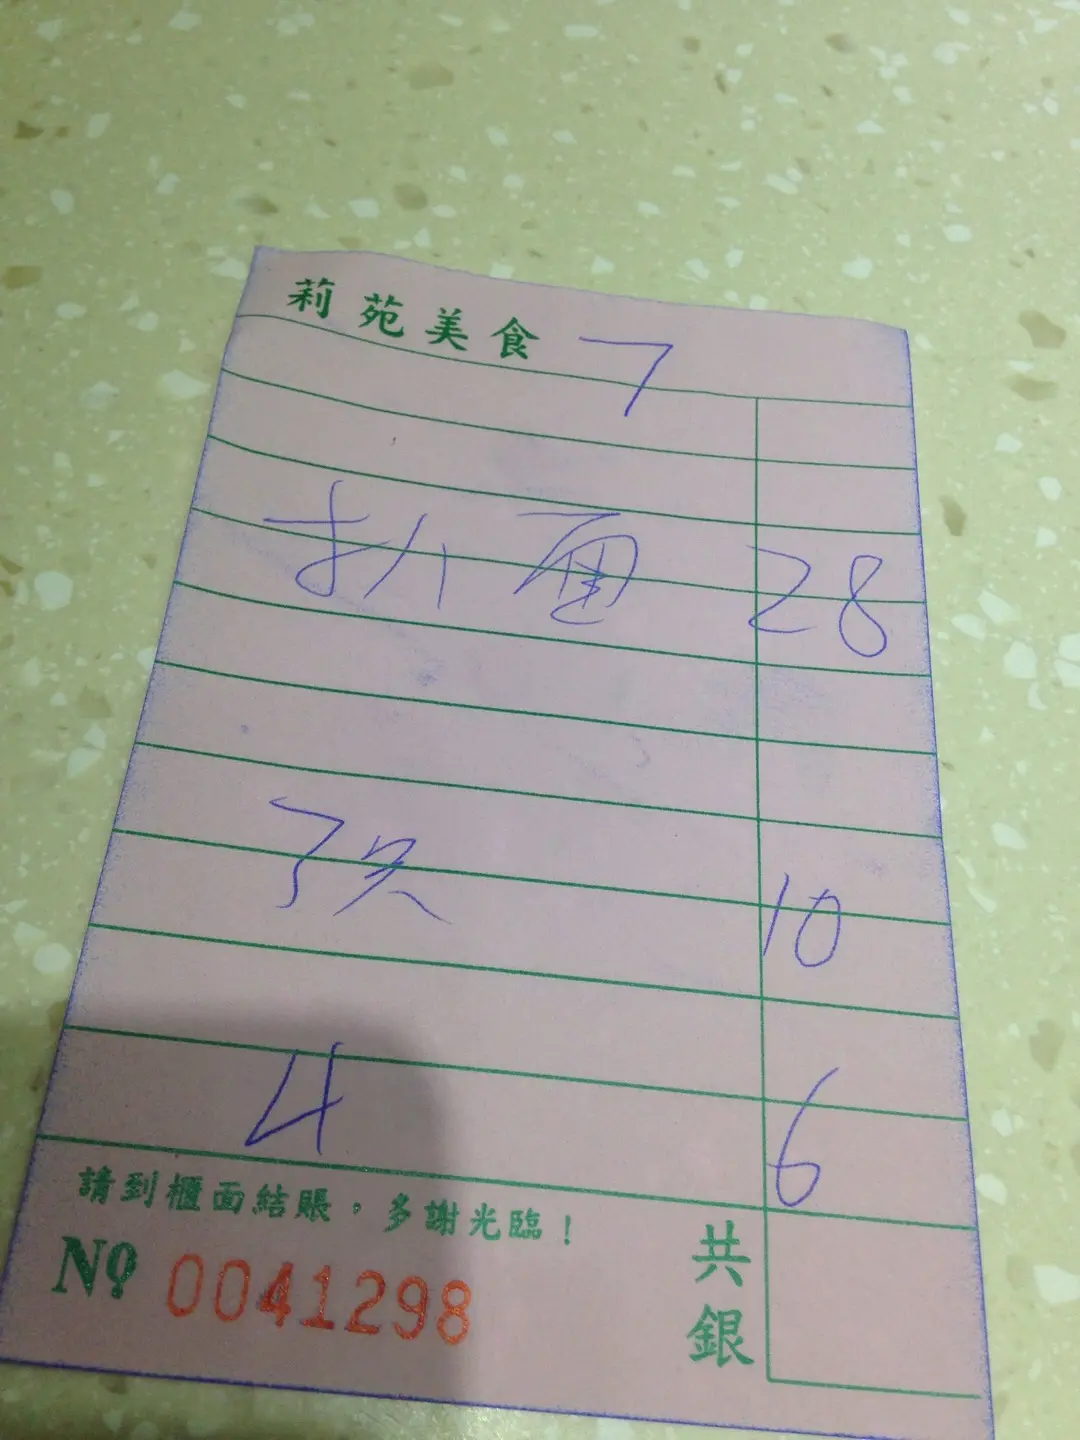 莉苑美食 7
扒面 28
10
4 6
請到櫃面結賬，多謝光臨！
No 0041298
共銀